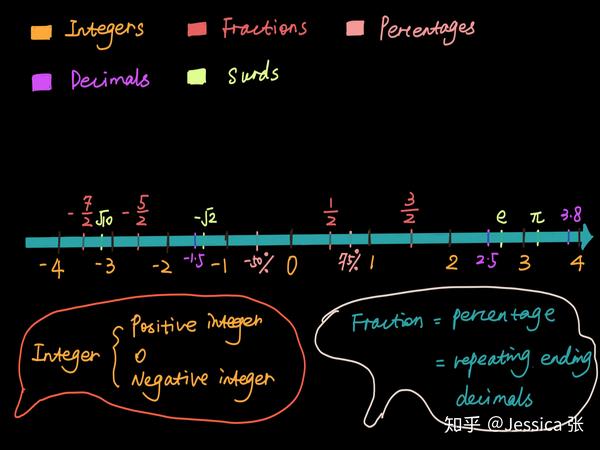 Integers Fractions Percentages
Decimals Surds
-7/2 √10 -5/2 -√2 1/2 3/2 e π 3.8
-4 -3 -2 -1.5 -1 -50% 0 75% 1 2 2.5 3 4
Positive integer
Integer { 0
Negative integer
Fraction = percentage
= repeating ending
decimals
知乎 @Jessica 张